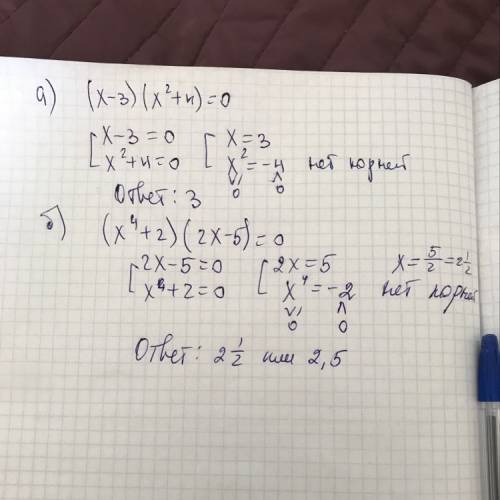 а) (x-3)(x²+4)=0
[x-3=0 [x=3
x²+4=0 x²=-4 нет корней
∨ı ∧
0 0
Ответ: 3
б) (x⁴+2)(2x-5)=0
[2x-5=0 [2x=5 x=5/2=2 1/2
x⁴+2=0 x⁴=-2 нет корней
∨ı ∧
0 0
Ответ: 2 1/2 или 2,5